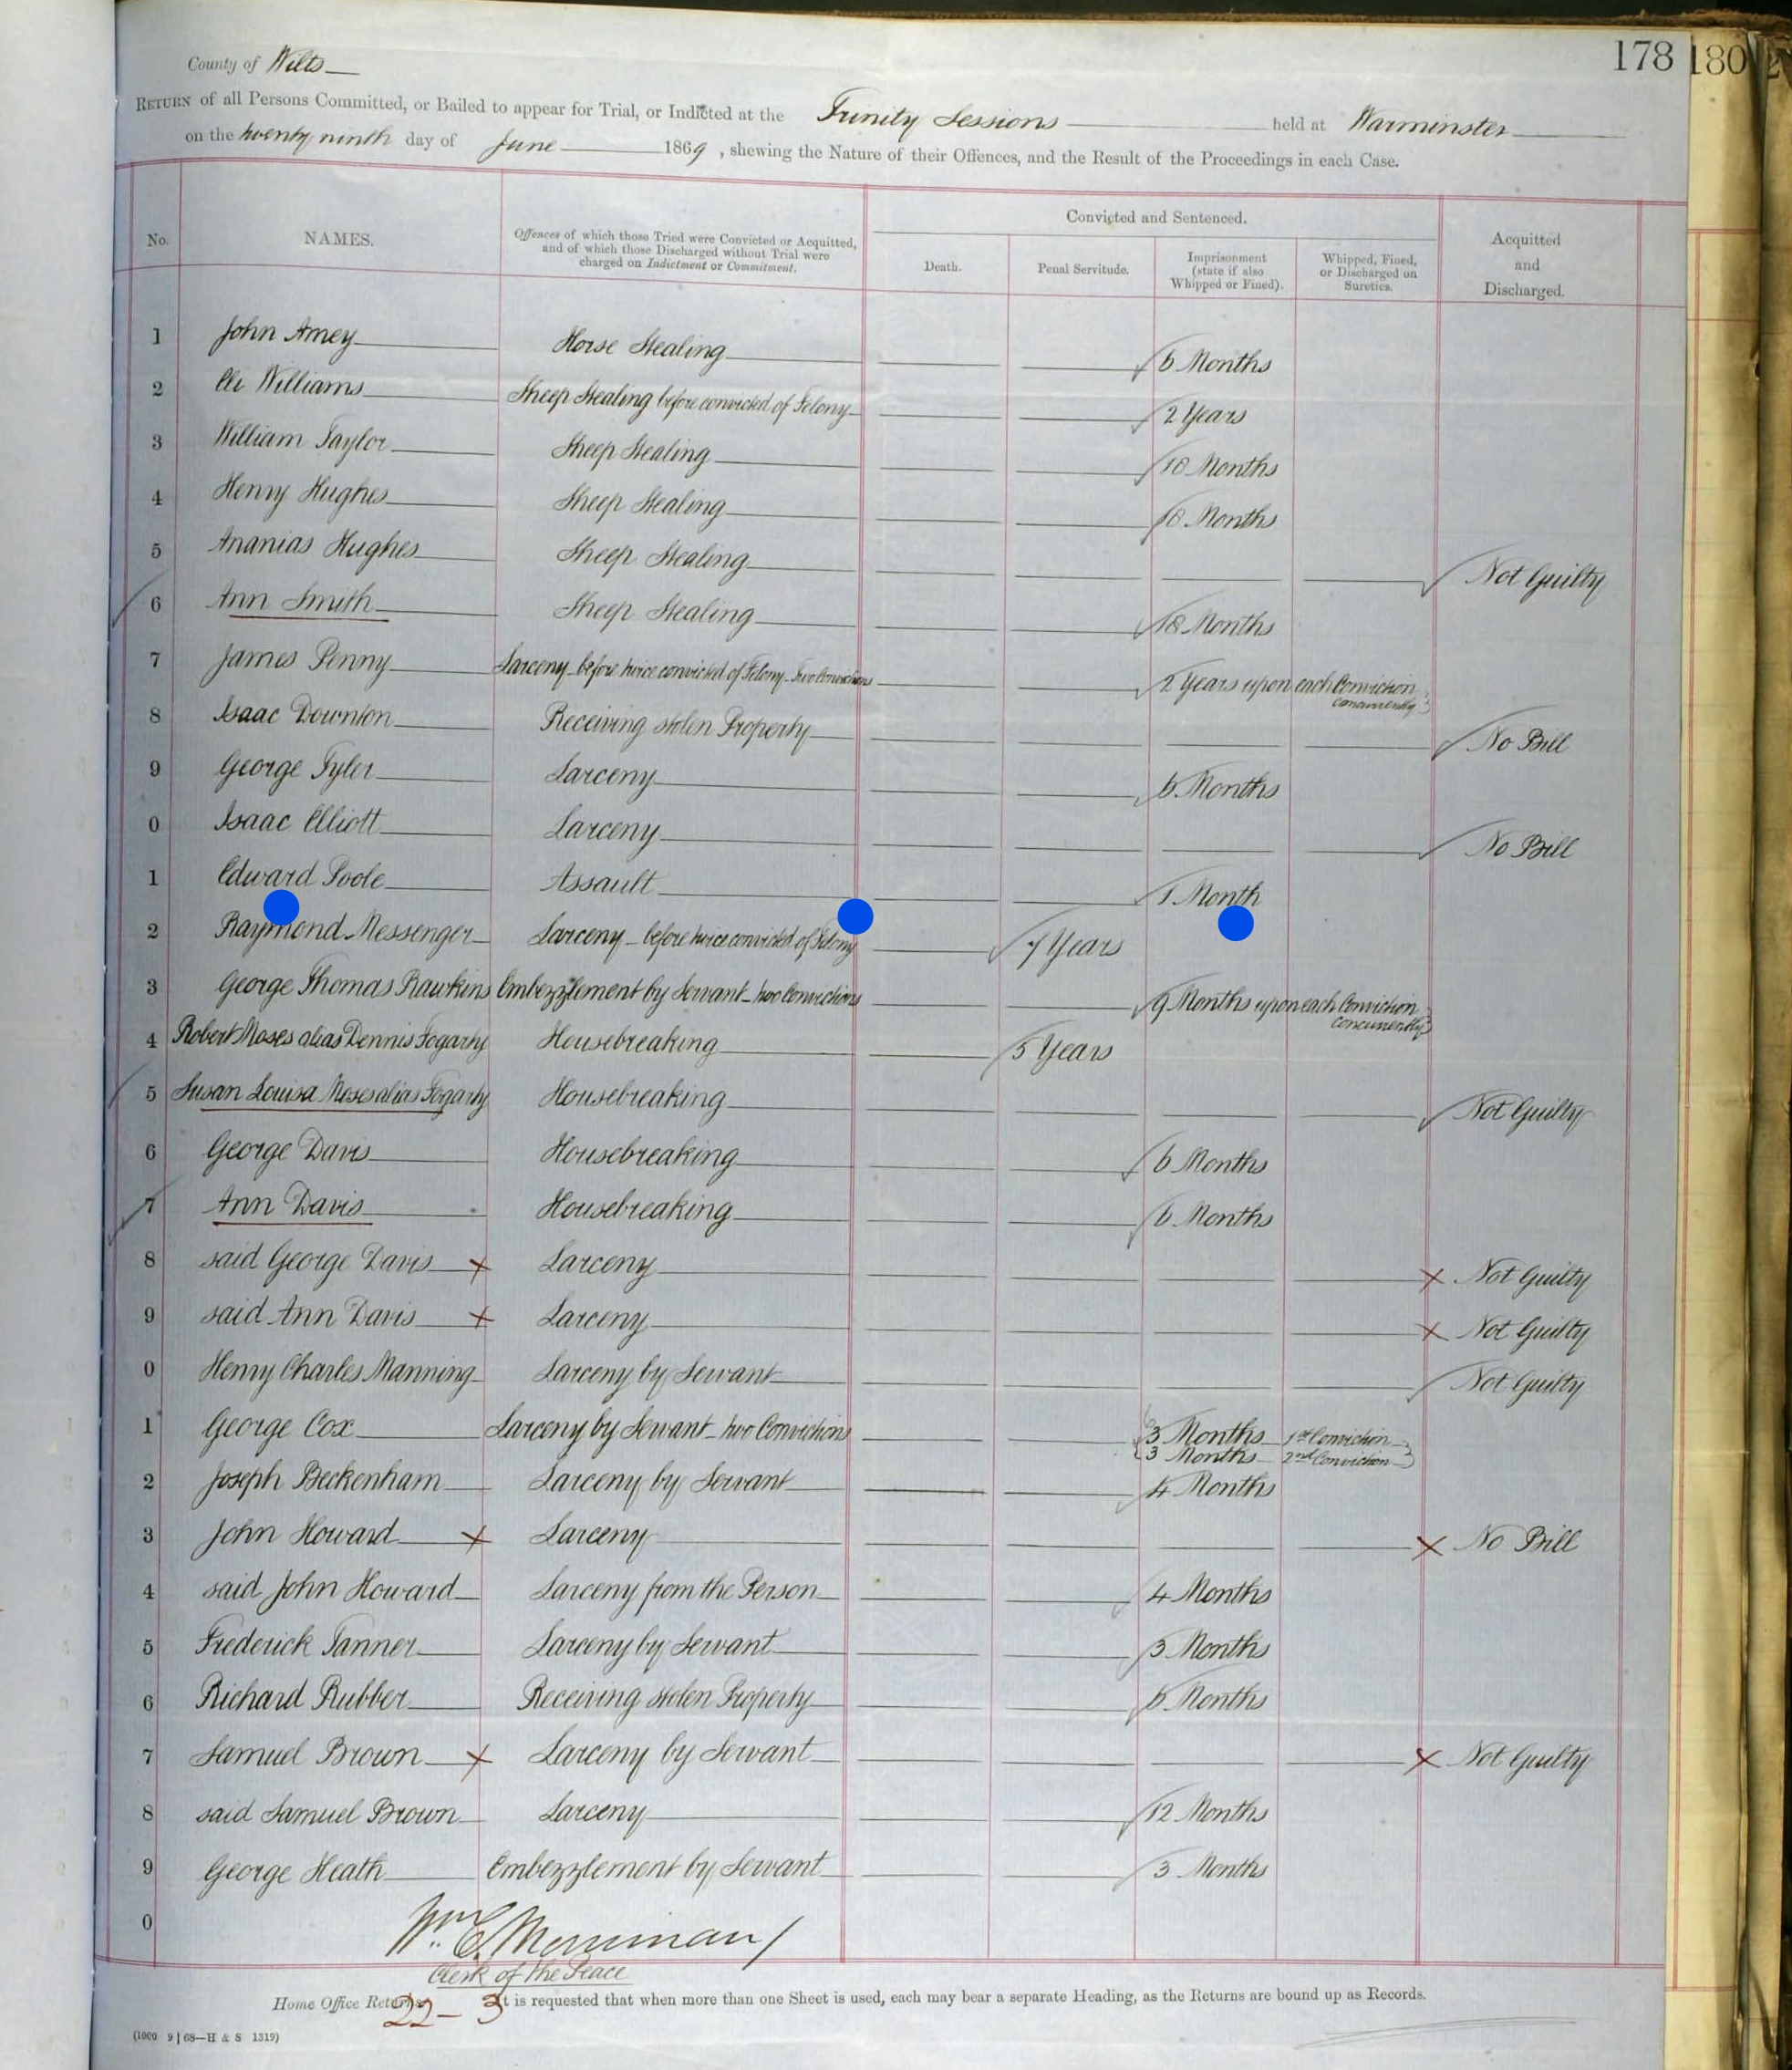 178 180
County of Wilts
RETURN of all Persons Committed, or Bailed to appear for Trial, or Indicted at the Trinity Sessions held at Warminster
on the twenty ninth day of June 1869, shewing the Nature of their Offences, and the Result of the Proceedings in each Case.
No. NAMES. Offences of which those Tried were Convicted or Acquitted, and of which those Discharged without Trial were charged on Indictment or Commitment. Convicted and Sentenced. Death. Penal Servitude. Imprisonment (state if also Whipped or Fined). Whipped, Fined, or Discharged on Sureties. Acquitted and Discharged.
1 John Amey Horse Stealing 6 Months
2 Eli Williams Sheep Stealing before convicted of Felony 2 Years
3 William Taylor Sheep Stealing 18 Months
4 Henry Hughes Sheep Stealing 18 Months
5 Ananias Hughes Sheep Stealing Not Guilty
6 Ann Smith Sheep Stealing 18 Months
7 James Penny Larceny before twice convicted of Felony - Two Convictions 2 Years upon each Conviction concurrently
8 Isaac Downton Receiving stolen Property No Bill
9 George Tyler Larceny 6 Months
0 Isaac Elliott Larceny No Bill
1 Edward Poole Assault 1 Month
2 Raymond Messenger Larceny - before twice convicted of Felony 7 Years
3 George Thomas Rawkins Embezzlement by Servant - two Convictions 9 Months upon each Conviction Concurrently
4 Robert Moses alias Dennis Fogarty Housebreaking 5 Years
5 Susan Louisa Moses alias Fogarty Housebreaking Not Guilty
6 George Davis Housebreaking 6 Months
7 Ann Davis Housebreaking 6 Months
8 said George Davis Larceny Not Guilty
9 said Ann Davis Larceny Not Guilty
0 Henry Charles Manning Larceny by Servant Not Guilty
1 George Cox Larceny by Servant - two Convictions 3 Months 1st Conviction
3 Months - 2nd Conviction
2 Joseph Beckenham Larceny by Servant 4 Months
3 John Howard Larceny No Bill
4 said John Howard Larceny from the Person 4 Months
5 Frederick Tanner Larceny by Servant 3 Months
6 Richard Rubber Receiving stolen Property 6 Months
7 Samuel Brown Larceny by Servant Not Guilty
8 said Samuel Brown Larceny 12 Months
9 George Heath Embezzlement by Servant 3 Months
0
Wm. C. Merriman
Clerk of the Peace
Home Office Returns It is requested that when more than one Sheet is used, each may bear a separate Heading, as the Returns are bound up as Records.
22 - 3
(1000 9 | 68—H & S 1319)